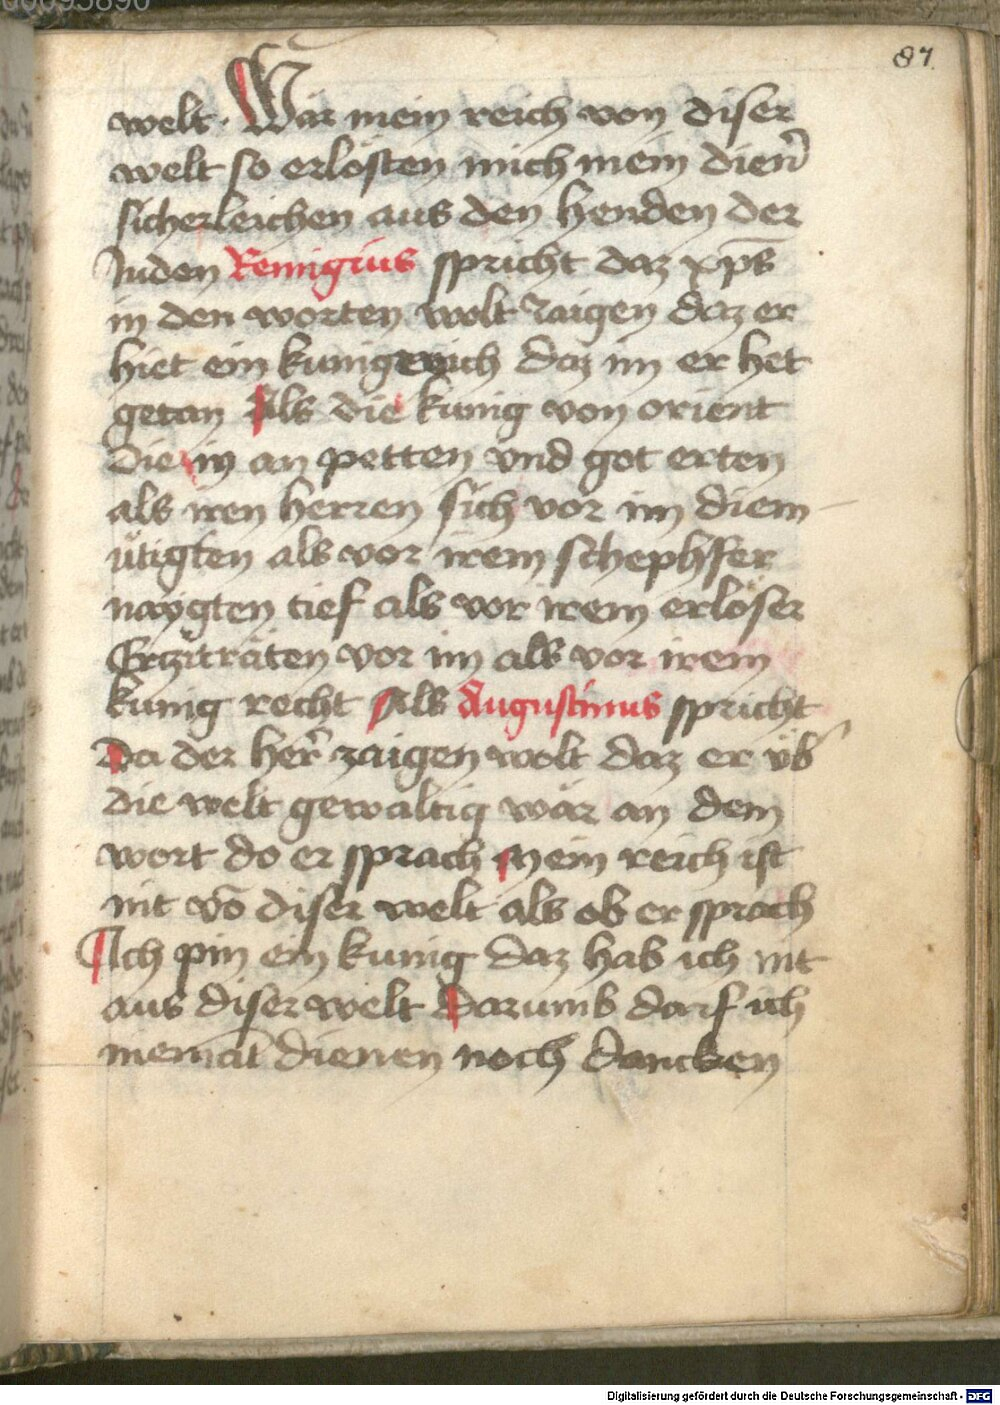 87
welt · Wär mein reich von diser
welt so erlösten mich mein dien̄
sicherleichen aus den henden der
Juden Remigius spricht daz xp̄s
in den worten wolt zaigen daz er
hiet ein kunigreich daz im er het
getan Als die kunig von orient
die in an petten vnd got erten
als iren herren sich vor im diem
ütigten als vor irem schephfer
naygten tief als vor irem erlöser
Erziträten vor im als vor irem
kunig recht Als Augustinus spricht
Da der her̄ zaigen wolt daz er üb̄
die welt gewaltig wär an dem
wort do er sprach Mein reich ist
nit vō diser welt als ob er sprach
Ich pin ein kunig daz hab ich nit
aus diser welt Darumb darf ich
dienen noch dancken
Digitalisierung gefördert durch die Deutsche Forschungsgemeinschaft - DFG